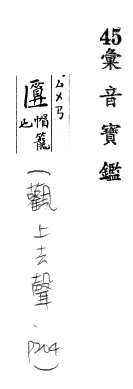 45彙音寶鑑
ㄙㄨㄢ
匴帽籠也
(觀上去聲、P204)